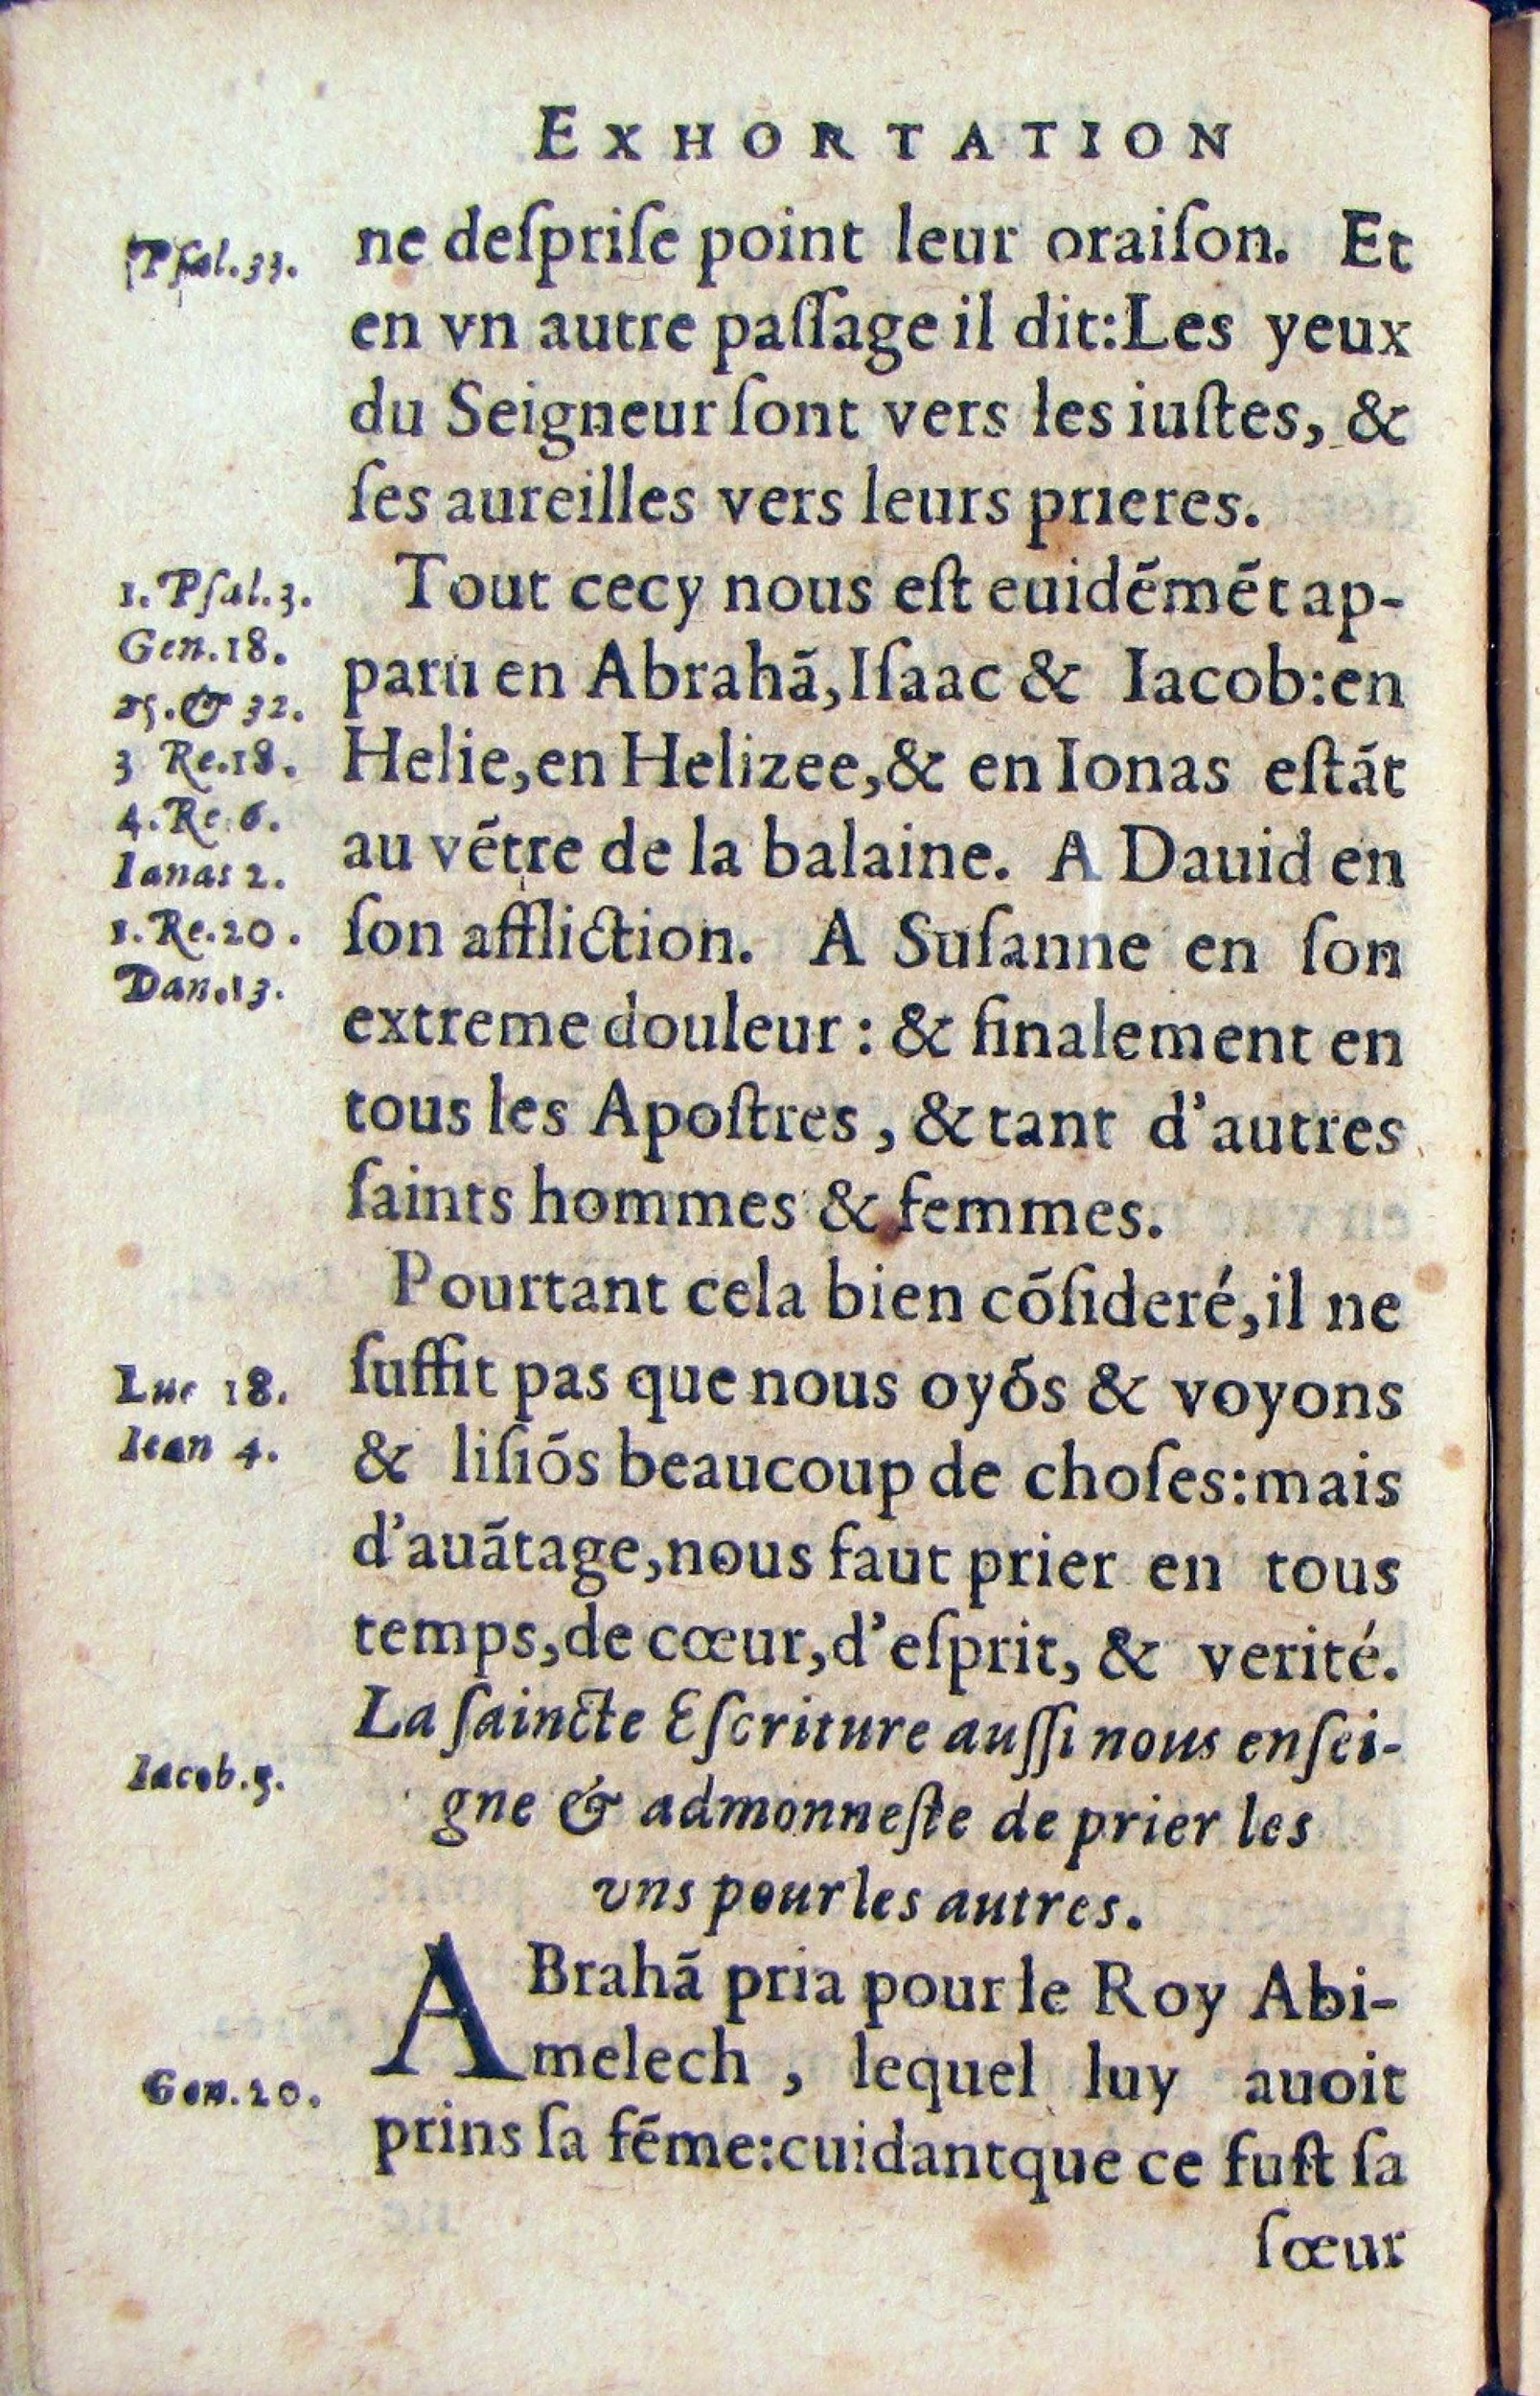 EXHORTATION
Pſal.33.
ne deſpriſe point leur oraiſon. Et
en vn autre paſſage il dit:Les yeux
du Seigneur ſont vers les iuſtes, &
ſes aureilles vers leurs prieres.
1. Pſal.3.
Gen.18.
25.& 32.
3 Re.18.
4.Re.6.
Ianas 2.
1.Re.20.
Dan.13.
Tout cecy nous eſt euidẽmẽt ap-
paru en Abrahã,Iſaac & Iacob:en
Helie,en Helizee,& en Ionas eſtãt
au vẽtre de la balaine. A Dauid en
ſon affliction. A Suſanne en ſon
extreme douleur : & finalement en
tous les Apoſtres , & tant d'autres
ſaints hommes & femmes.
Luc 18.
Iean 4.
Pourtant cela bien cõſideré,il ne
ſuffit pas que nous oyõs & voyons
& liſiõs beaucoup de choſes:mais
d'auãtage,nous faut prier en tous
temps,de cœur,d'eſprit, & verité.
Iacob.5.
La ſaincte Eſcriture auſſi nous enſei-
gne & admonneſte de prier les
vns pour les autres.
Gen.20.
ABrahã pria pour le Roy Abi-
melech , lequel luy auoit
prins ſa fẽme:cuidant que ce fuſt ſa
ſœur